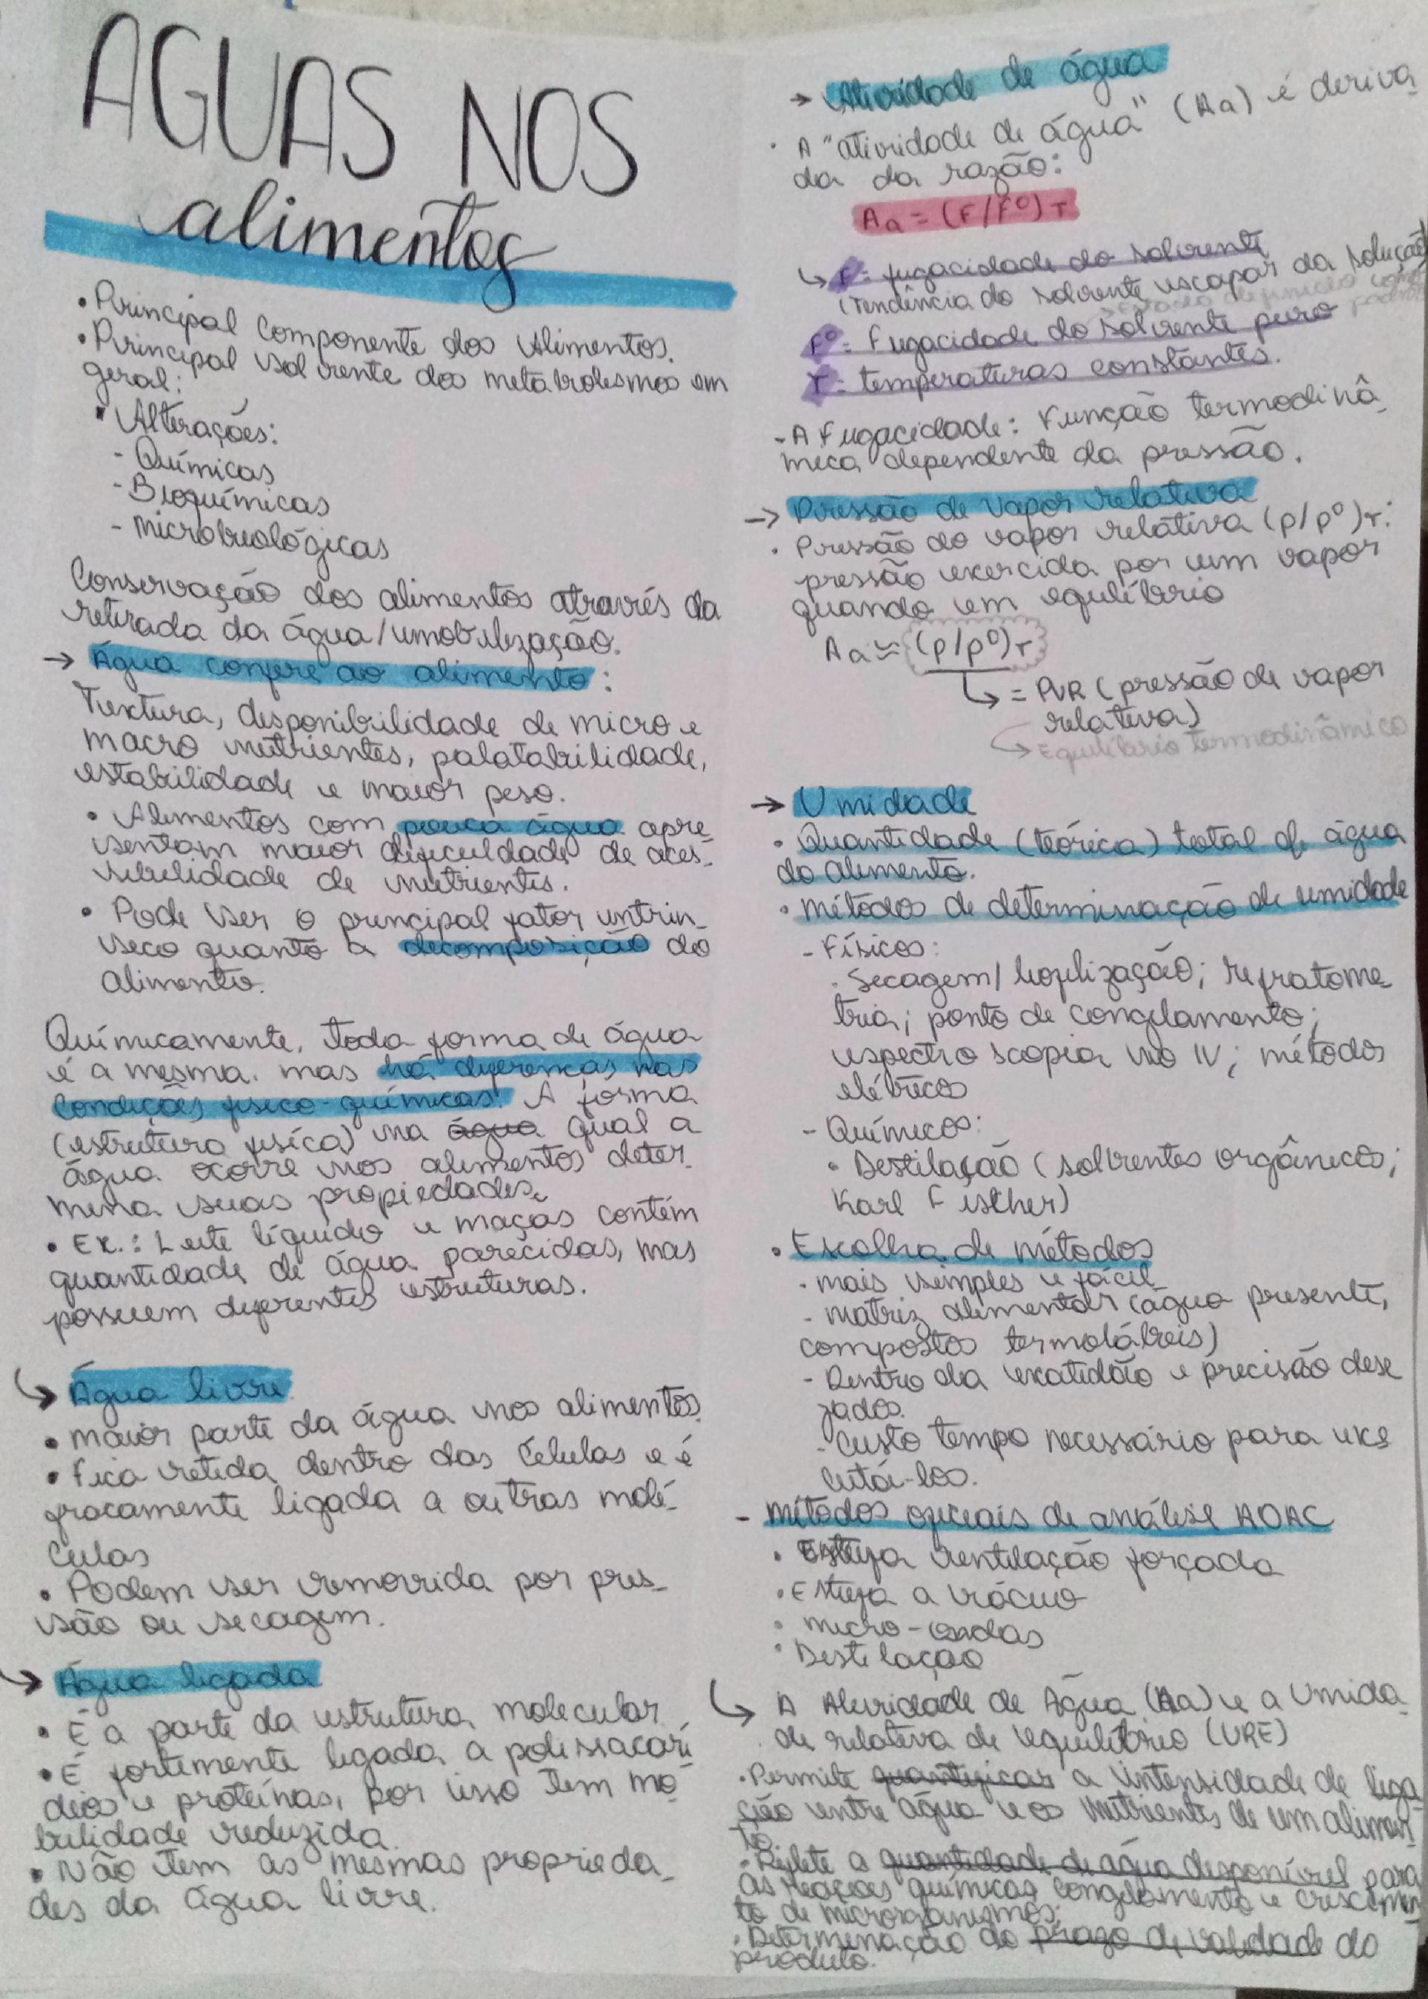 AGUAS NOS
alimentos
• Principal componente dos Alimentos.
• Principal solvente dos metabolismos em
geral:
• Alterações:
- Químicas
- Bioquímicas
- Microbiológicas
Conservação dos alimentos através da
retirada da água/imobilização.
→ Água confere ao alimento:
Textura, disponibilidade de micro e
macro nutrientes, palatabilidade,
estabilidade e maior peso.
• Alimentos com pouca água apre-
sentam maior dificuldade de aces-
sibilidade de nutrientes.
• Pode ser o principal fator intrín-
seco quanto a decomposição do
alimento.
Químicamente, toda forma de água
é a mesma. mas há diferenças nas
condições físico-químicas. A forma
(estrutura física) na água qual a
água ocorre nos alimentos deter-
mina suas propiedades.
• Ex.: Leite líquido e maças contém
quantidade de água parecidas, mas
possuem diferentes estruturas.
↳ Água livre
• Maior parte da água nos alimentos
• Fica retida dentro das células e é
fracamente ligada a outras molé-
culas
• Podem ser removida por pres-
são ou secagem.
↳ Água ligada
• É a parte da estrutura molecular
• É fortemente ligada a polissacarí
deos e proteínas, por isso tem mo-
bilidade reduzida.
• Não tem as mesmas proprieda-
des da água livre.
→ Atividade de água
• A "atividade de água" (Aa) é deriva-
da da razão:
Aa = (F/F°)T
↳ F = fugacidade do solvente
(Tendência do solvente escapar da solução)
→ Estado definido como padrão
F° = Fugacidade do solvente puro
T = temperaturas constantes.
- A fugacidade: Função termodinâ-
mica dependente da pressão.
→ Pressão de vapor relativa
• Pressão do vapor relativa (p/p°)T:
pressão exercida por um vapor
quando em equilíbrio
Aa ≈ (p/p°)T
↳ = PVR (pressão de vapor
relativa)
↳ Equilíbrio termodinâmico
→ Umidade
• Quantidade (teórica) total de água
do alimento.
• Métodos de determinação de umidade
- Físicos:
• Secagem/liofilização; refratome-
tria; ponto de congelamento;
espectroscopia no IV; métodos
elétricos
- Químicos:
• Destilação (solventes orgânicos;
Karl Fischer)
• Escolha de métodos
- mais simples e fácil
- matriz alimentar (água presente,
compostos termolábeis)
- Dentro da exatidão e precisão dese
jados.
- Custo tempo necessário para exe
cutá-los.
- Métodos oficiais de análise AOAC
• Estufa ventilação forçada
• Estufa a vácuo
• Micro-ondas
• Destilação
↳ A Atividade de Água (Aa) e a Umida-
de relativa de equilíbrio (URE)
• Permite quantificar a intensidade de liga-
ção entre água e os nutrientes de um alimen-
to.
• Reflete a quantidade de água disponível para
as reações químicas, congelamento e crescimen-
to de microrganismos;
• Determinação do prazo de validade do
produto.